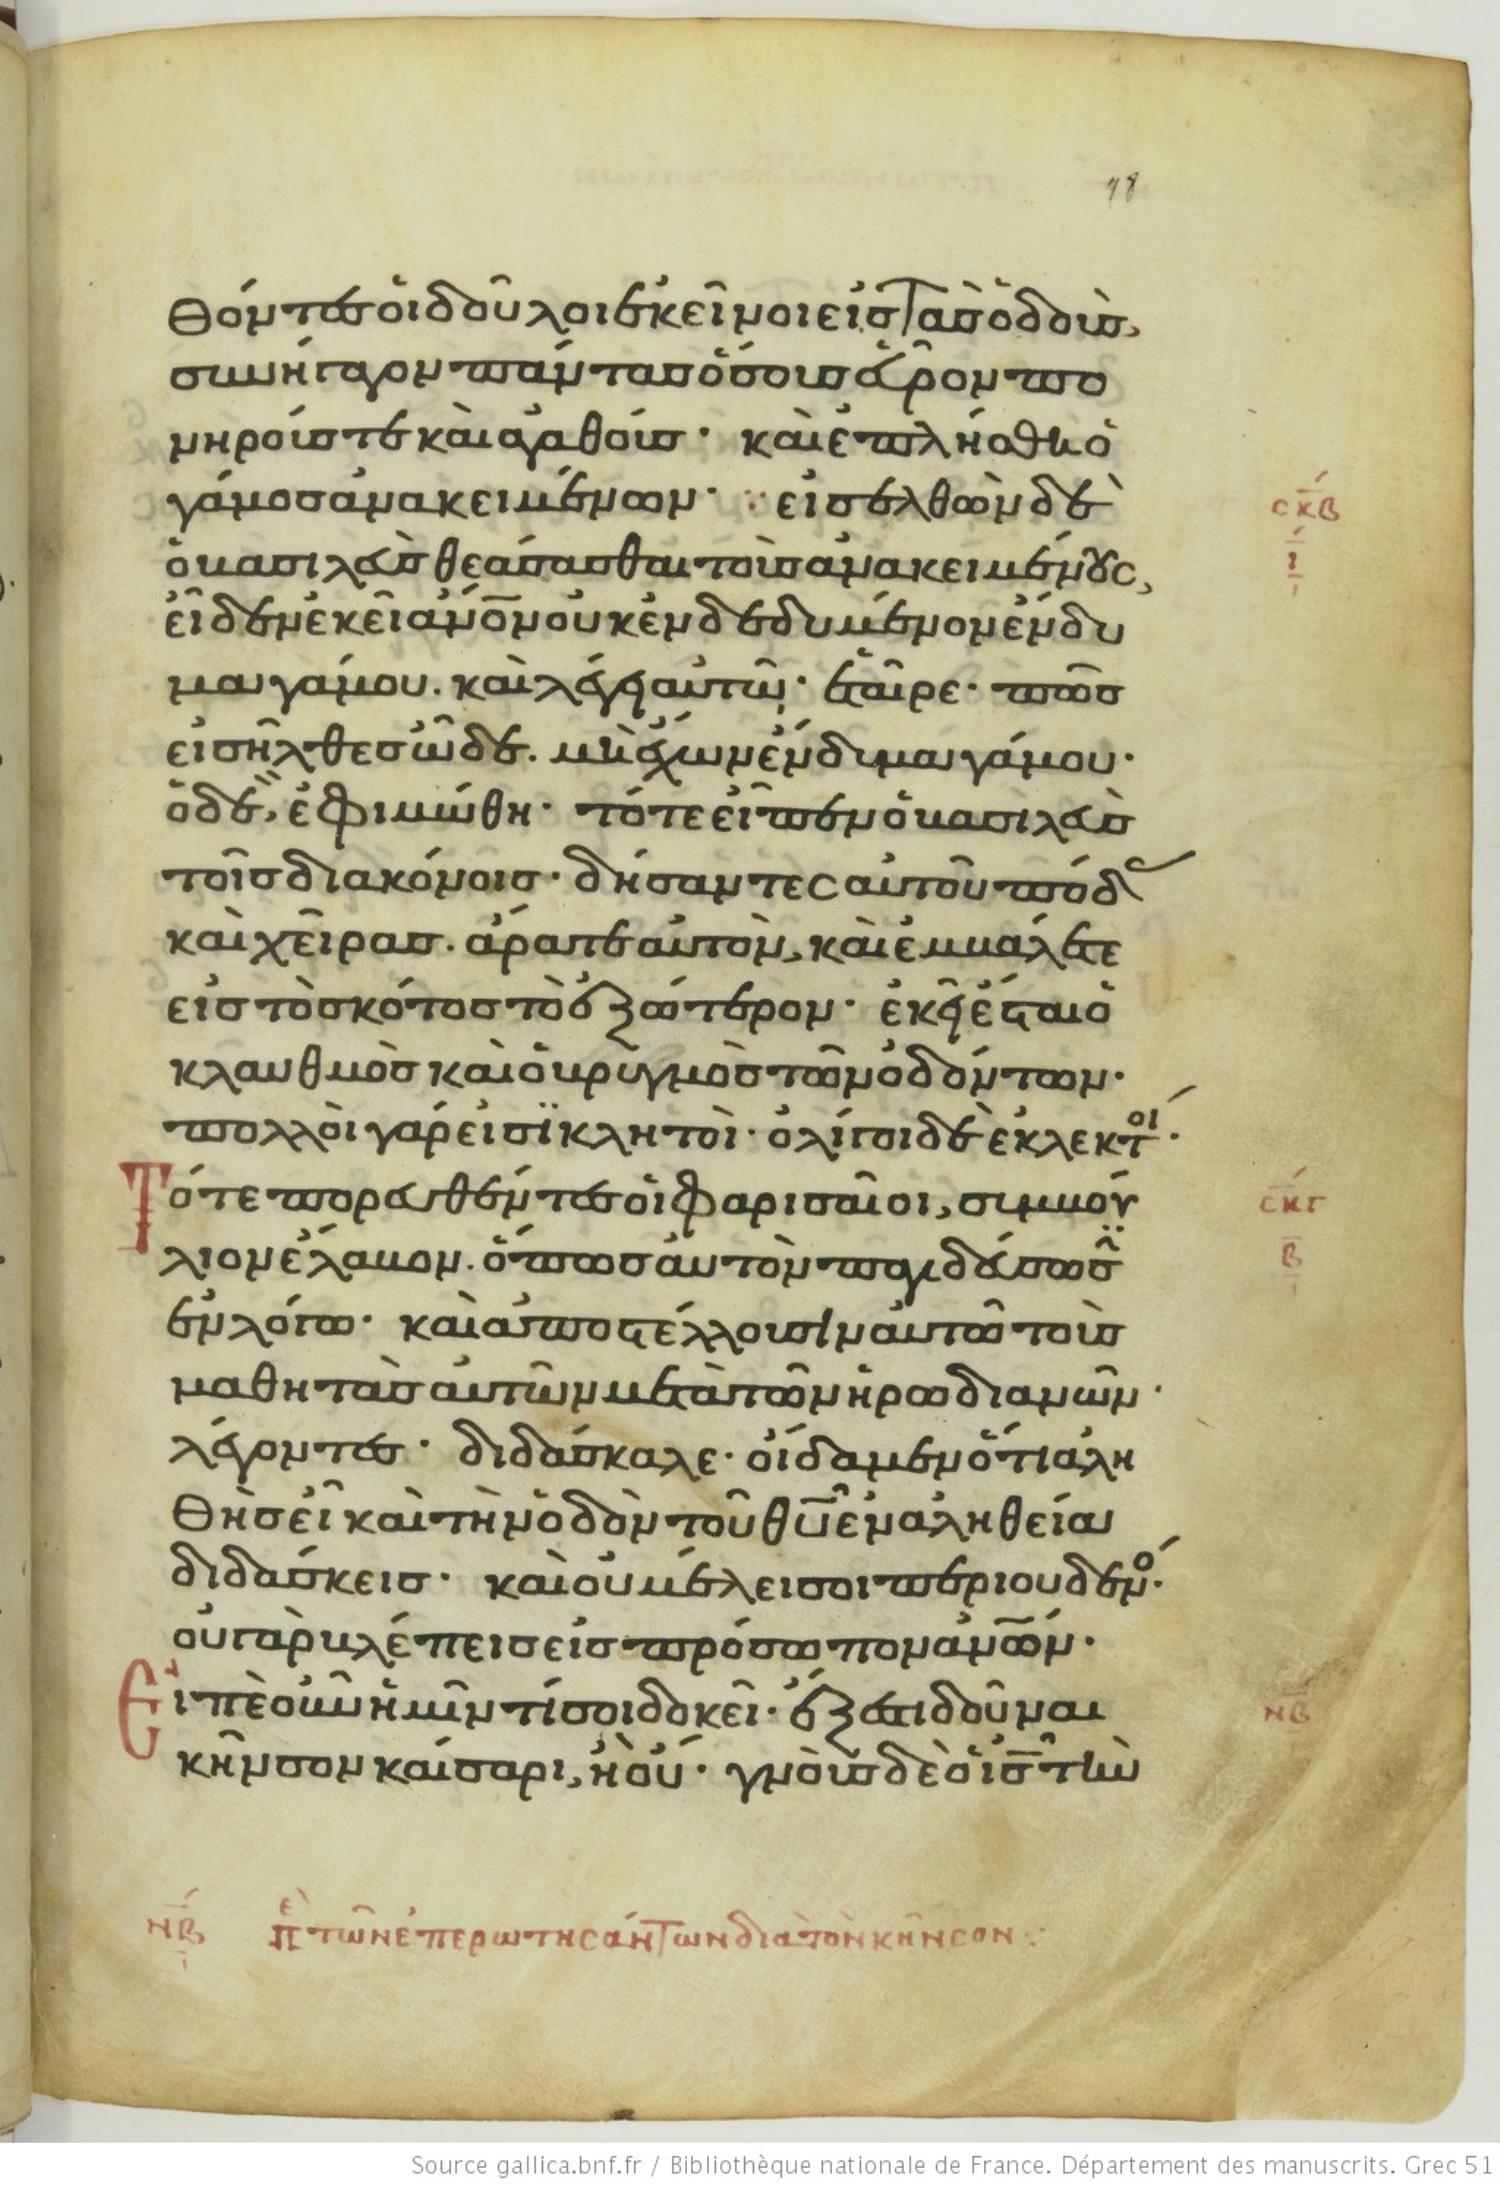 48
θόντες οἱ δοῦλοι ἐκεῖνοι εἰς τὰς ὁδοὺς,
συνήγαγον πάντας ὅσους εὗρον πο
νηρούς τε καὶ ἀγαθούς· καὶ ἐπλήσθη ὁ
γάμος ἀνακειμένων· εἰσελθὼν δὲ
σκβ
ὁ βασιλεὺς θεάσασθαι τοὺς ἀνακειμένους,
ι
εἶδεν ἐκεῖ ἄνο̅ν οὐκ ἐνδεδυμένον ἔνδυ
μα γάμου. καὶ λέγει αὐτῷ· ἑταῖρε· πῶς
εἰσῆλθες ὧδε. μὴ ἔχων ἔνδυμα γάμου·
ὁ δὲ, ἐφιμώθη· τότε εἶπεν ὁ βασιλεὺς
τοῖς διακόνοις· δήσαντες αὐτοῦ πόδ
καὶ χεῖρας. ἄρατε αὐτὸν, καὶ ἐμβάλετε
εἰς τὸ σκότος τὸ ἐξώτερον· ἐκεῖ ἔσται ὁ
κλαυθμὸς καὶ ὁ βρυγμὸς τῶν ὀδόντων·
πολλοὶ γάρ εἰσϊ κλητοὶ· ὀλίγοι δὲ ἐκλεκτοί·
Τότε πορευθέντες οἱ Φαρισαῖοι, συμβού
σκγ
λιον ἔλαβον. ὅπως αὐτὸν παγιδεύσωσϊ
β
ἐν λόγω· καὶ ἀποστέλλουσιν αὐτῶ τοὺς
μαθητὰς αὐτῶν μετὰ τῶν ἡρωδιανῶν·
λέγοντες· διδάσκαλε· οἴδαμεν ὅτι ἀλη
θὴς εἶ καὶ τὴν ὁδὸν τοῦ θυ̅ ἐν ἀληθεία
διδάσκεις· καὶ οὐ μέλει σοι περὶ οὐδενό·
οὐ γὰρ βλέπεις εἰς πρόσωπον ἀνω̅ν·
Εἰπὲ οὖν ἡμῖν τί σοι δοκεῖ· ἔξεστι δοῦναι
νβ
κῆνσον καίσαρι, ἢ οὔ· γνοὺς δὲ ὁ ισ̅ τὴν
νβ πε τῶν ἐπερωτησάντων διὰ τὸν κῆνσον
Source gallica.bnf.fr / Bibliothèque nationale de France. Département des manuscrits. Grec 51